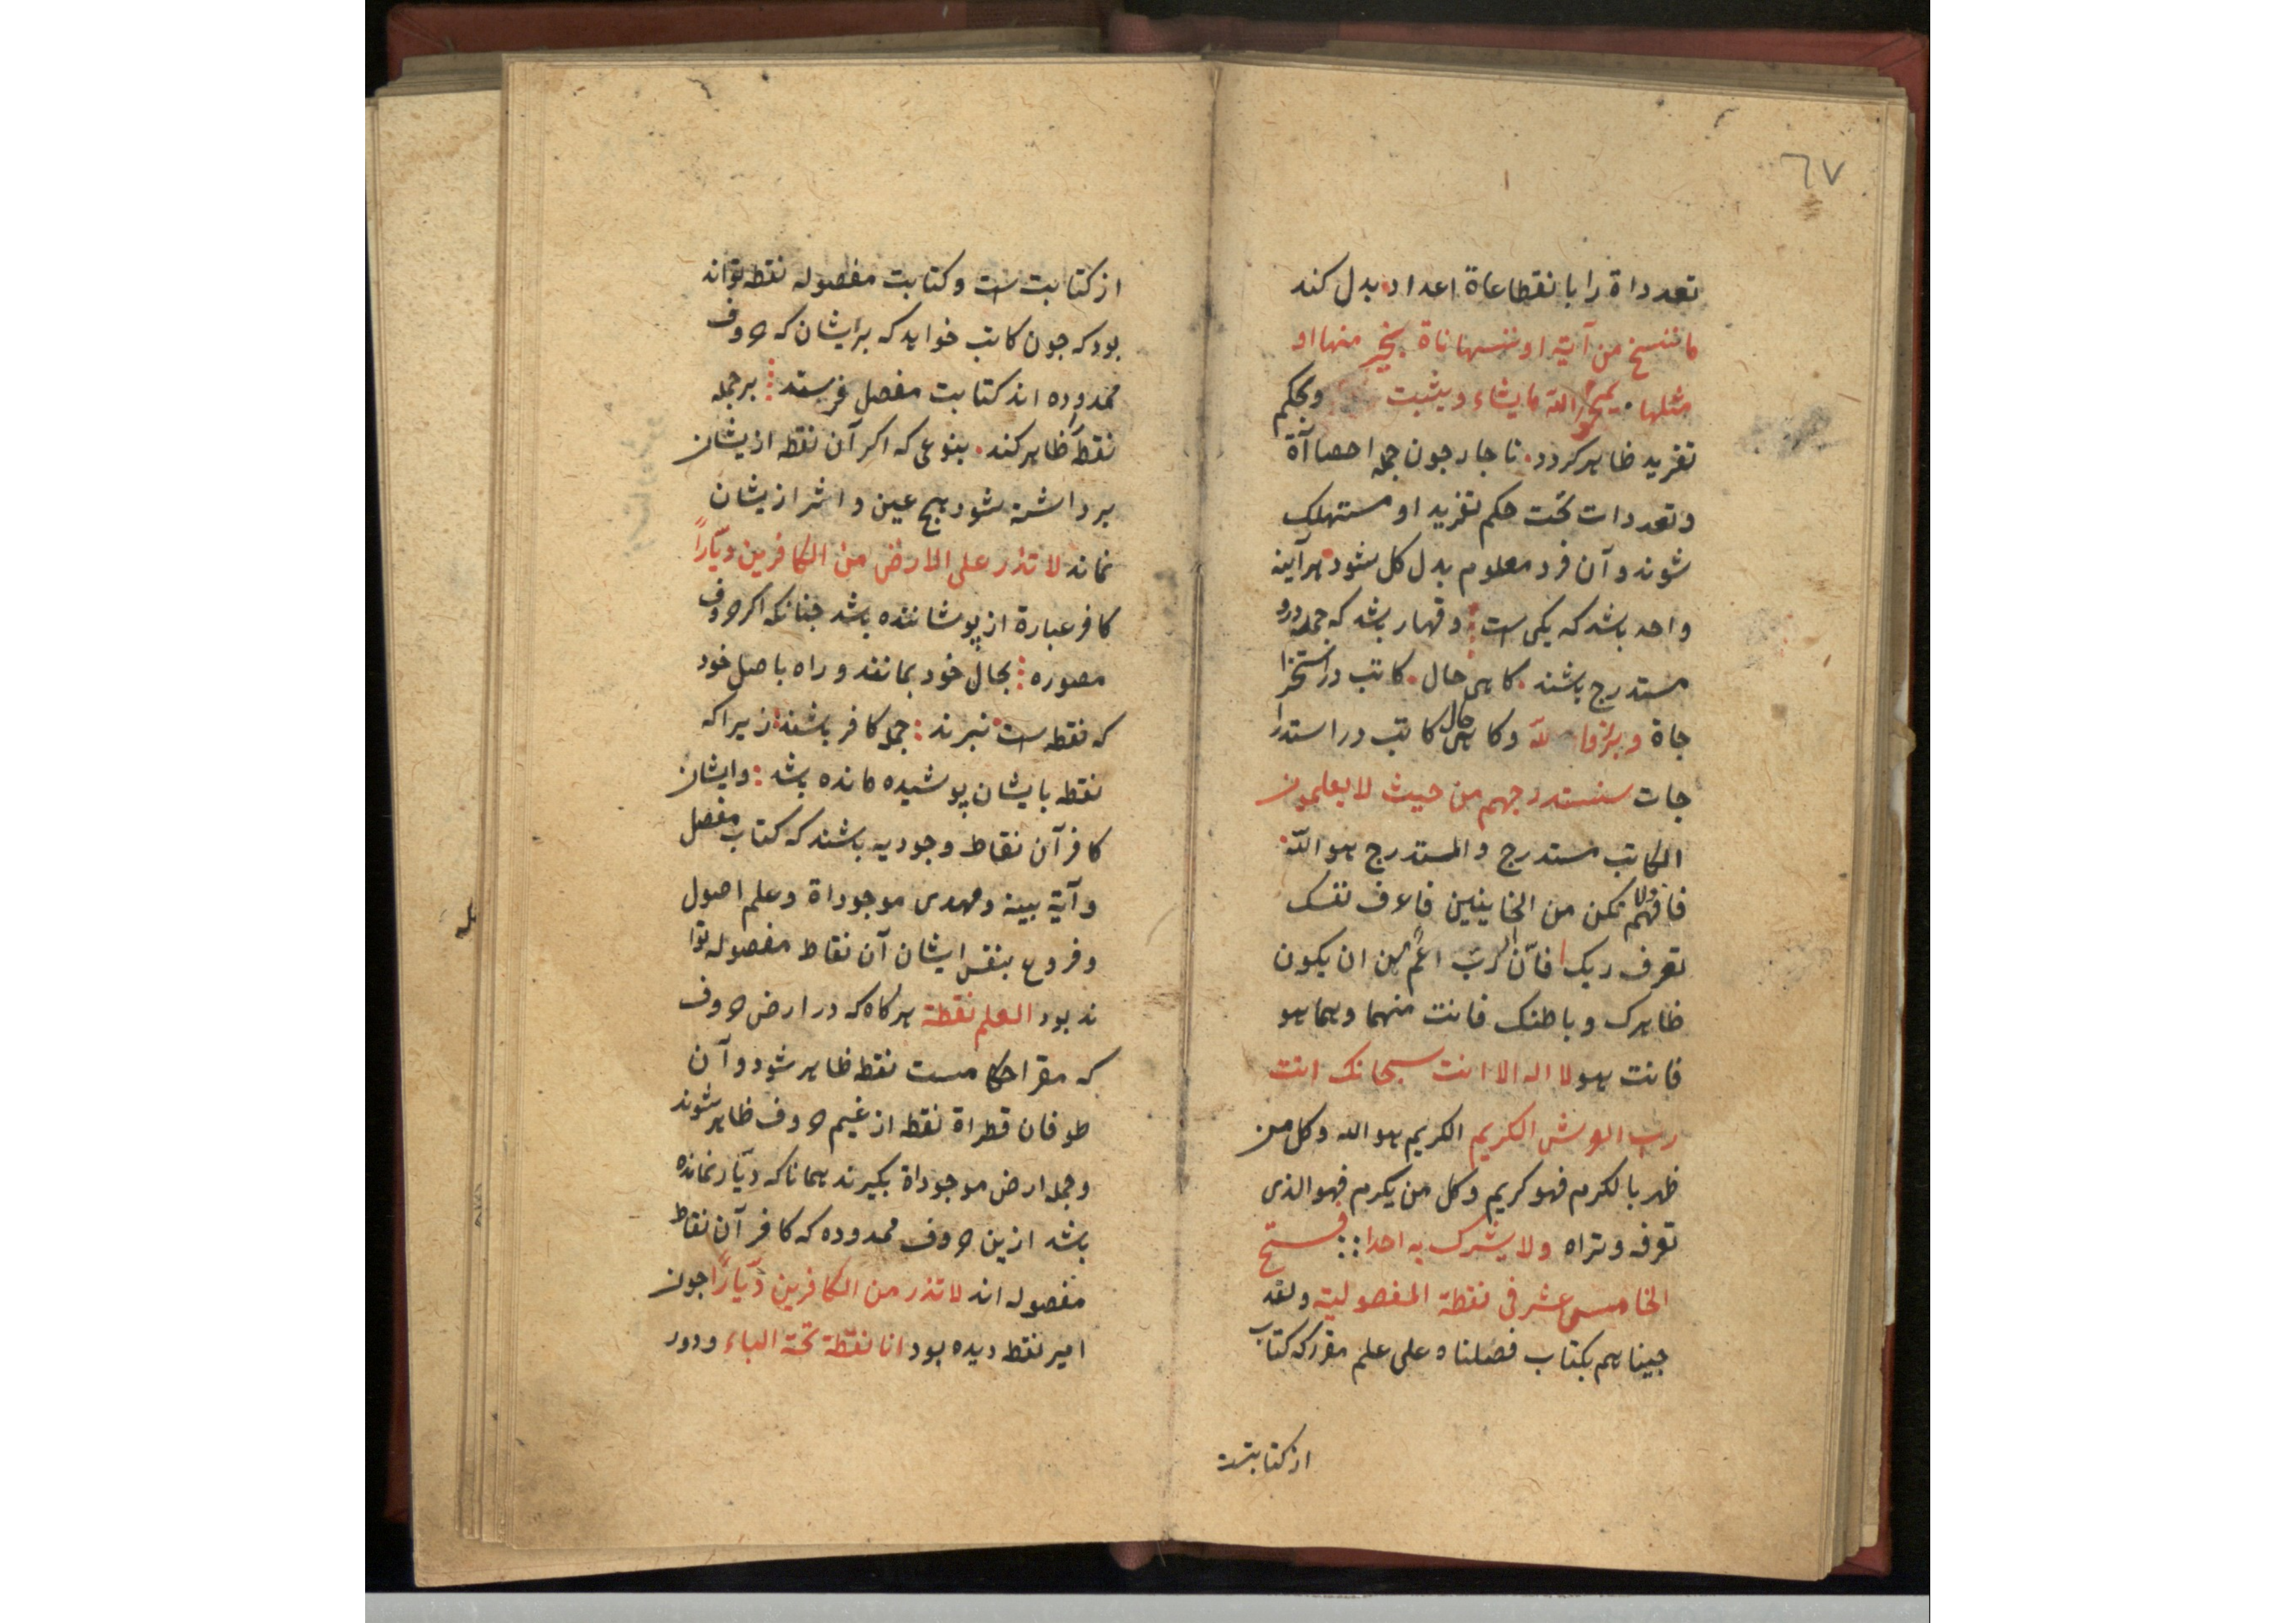 ٦٧
تعدداة را بانقطاعاة اعداد بدل کند
ما ننسخ من آیة او ننسها ناة بخیر منها او
مثلها یمحو الله ما یشاء و یثبت وبحکم
تفرید ظاهر کردد ناجار جون جمله احصاآة
و تعددات تحت حکم تفرید او مستهلک
شوند و آن فرد معلوم بدل کل شود هرآینه
واحد باشد که یکی است و قهار باشد که جمله درو
مستدرج باشند کاهی حال کاتب در استخرا
جاة و برزوا لله و کاهی حال کاتب در استدرا
جات سنستدرجهم من حیث لا یعلمون
الکاتب مستدرج و المستدرج هو الله
فافهم ولا تکن من الخاینین فاعرف نفسک
تعرف ربک فانّ الربّ اعم من ان یکون
ظاهرک و باطنک فانت منهما و هما هو
فانت هو لا اله الا انت سبحانک انت
رب العرش الکریم الکریم هو الله و کل من
ظهر بالکرم فهو کریم و کل من یکرم فهو الذی
تعرفه و تراه ولا یشرک به احدا فتح
الخامس عشر فی نقطة المفصولیة و لقد
جیناهم بکتاب فصلناه علی علم مقرر که کتاب
از کتابتست
از کتابت است و کتابت مفصوله نقطه تواند
بود که جون کاتب خواهد که بر ایشان که حروف
محدوده اند کتابت مفصل فرستد بر جمله
نقطه ظاهر کند بنوعی که اکر آن نقطه ازیشان
برداشته شود هیچ عین و اثر ازیشان
نماند لا تذر علی الارض من الکافرین دیّاراً
کافر عبارة از پوشاننده باشد جنانکه اکر حروف
مصوره بحال خود بمانند و راه باصل خود
که نقطه است نبرند جمله کافر باشند زیرا که
نقطه بایشان پوشیده مانده باشد و ایشان
کافر آن نقاط وجودیه باشند که کتاب مفصل
و آیة بینه و مهدی موجوداة و علم اصول
و فروع بنفس ایشان آن نقاط مفصوله توا
ند بود العلم نقطة هر کاه که در ارض حروف
که مقر احکامست نقطه ظاهر شود و آن
طوفان قطراة نقطه از غیم حروف ظاهر شوند
و جمله ارض موجوداة بکیرند همانا که دیّار نمانده
باشد ازین حروف محدوده که کافر آن نقاط
مفصوله اند لا تذر من الکافرین دیّاراً جون
امیر نقطه دیده بود انا نقطة تحة الباء و دور